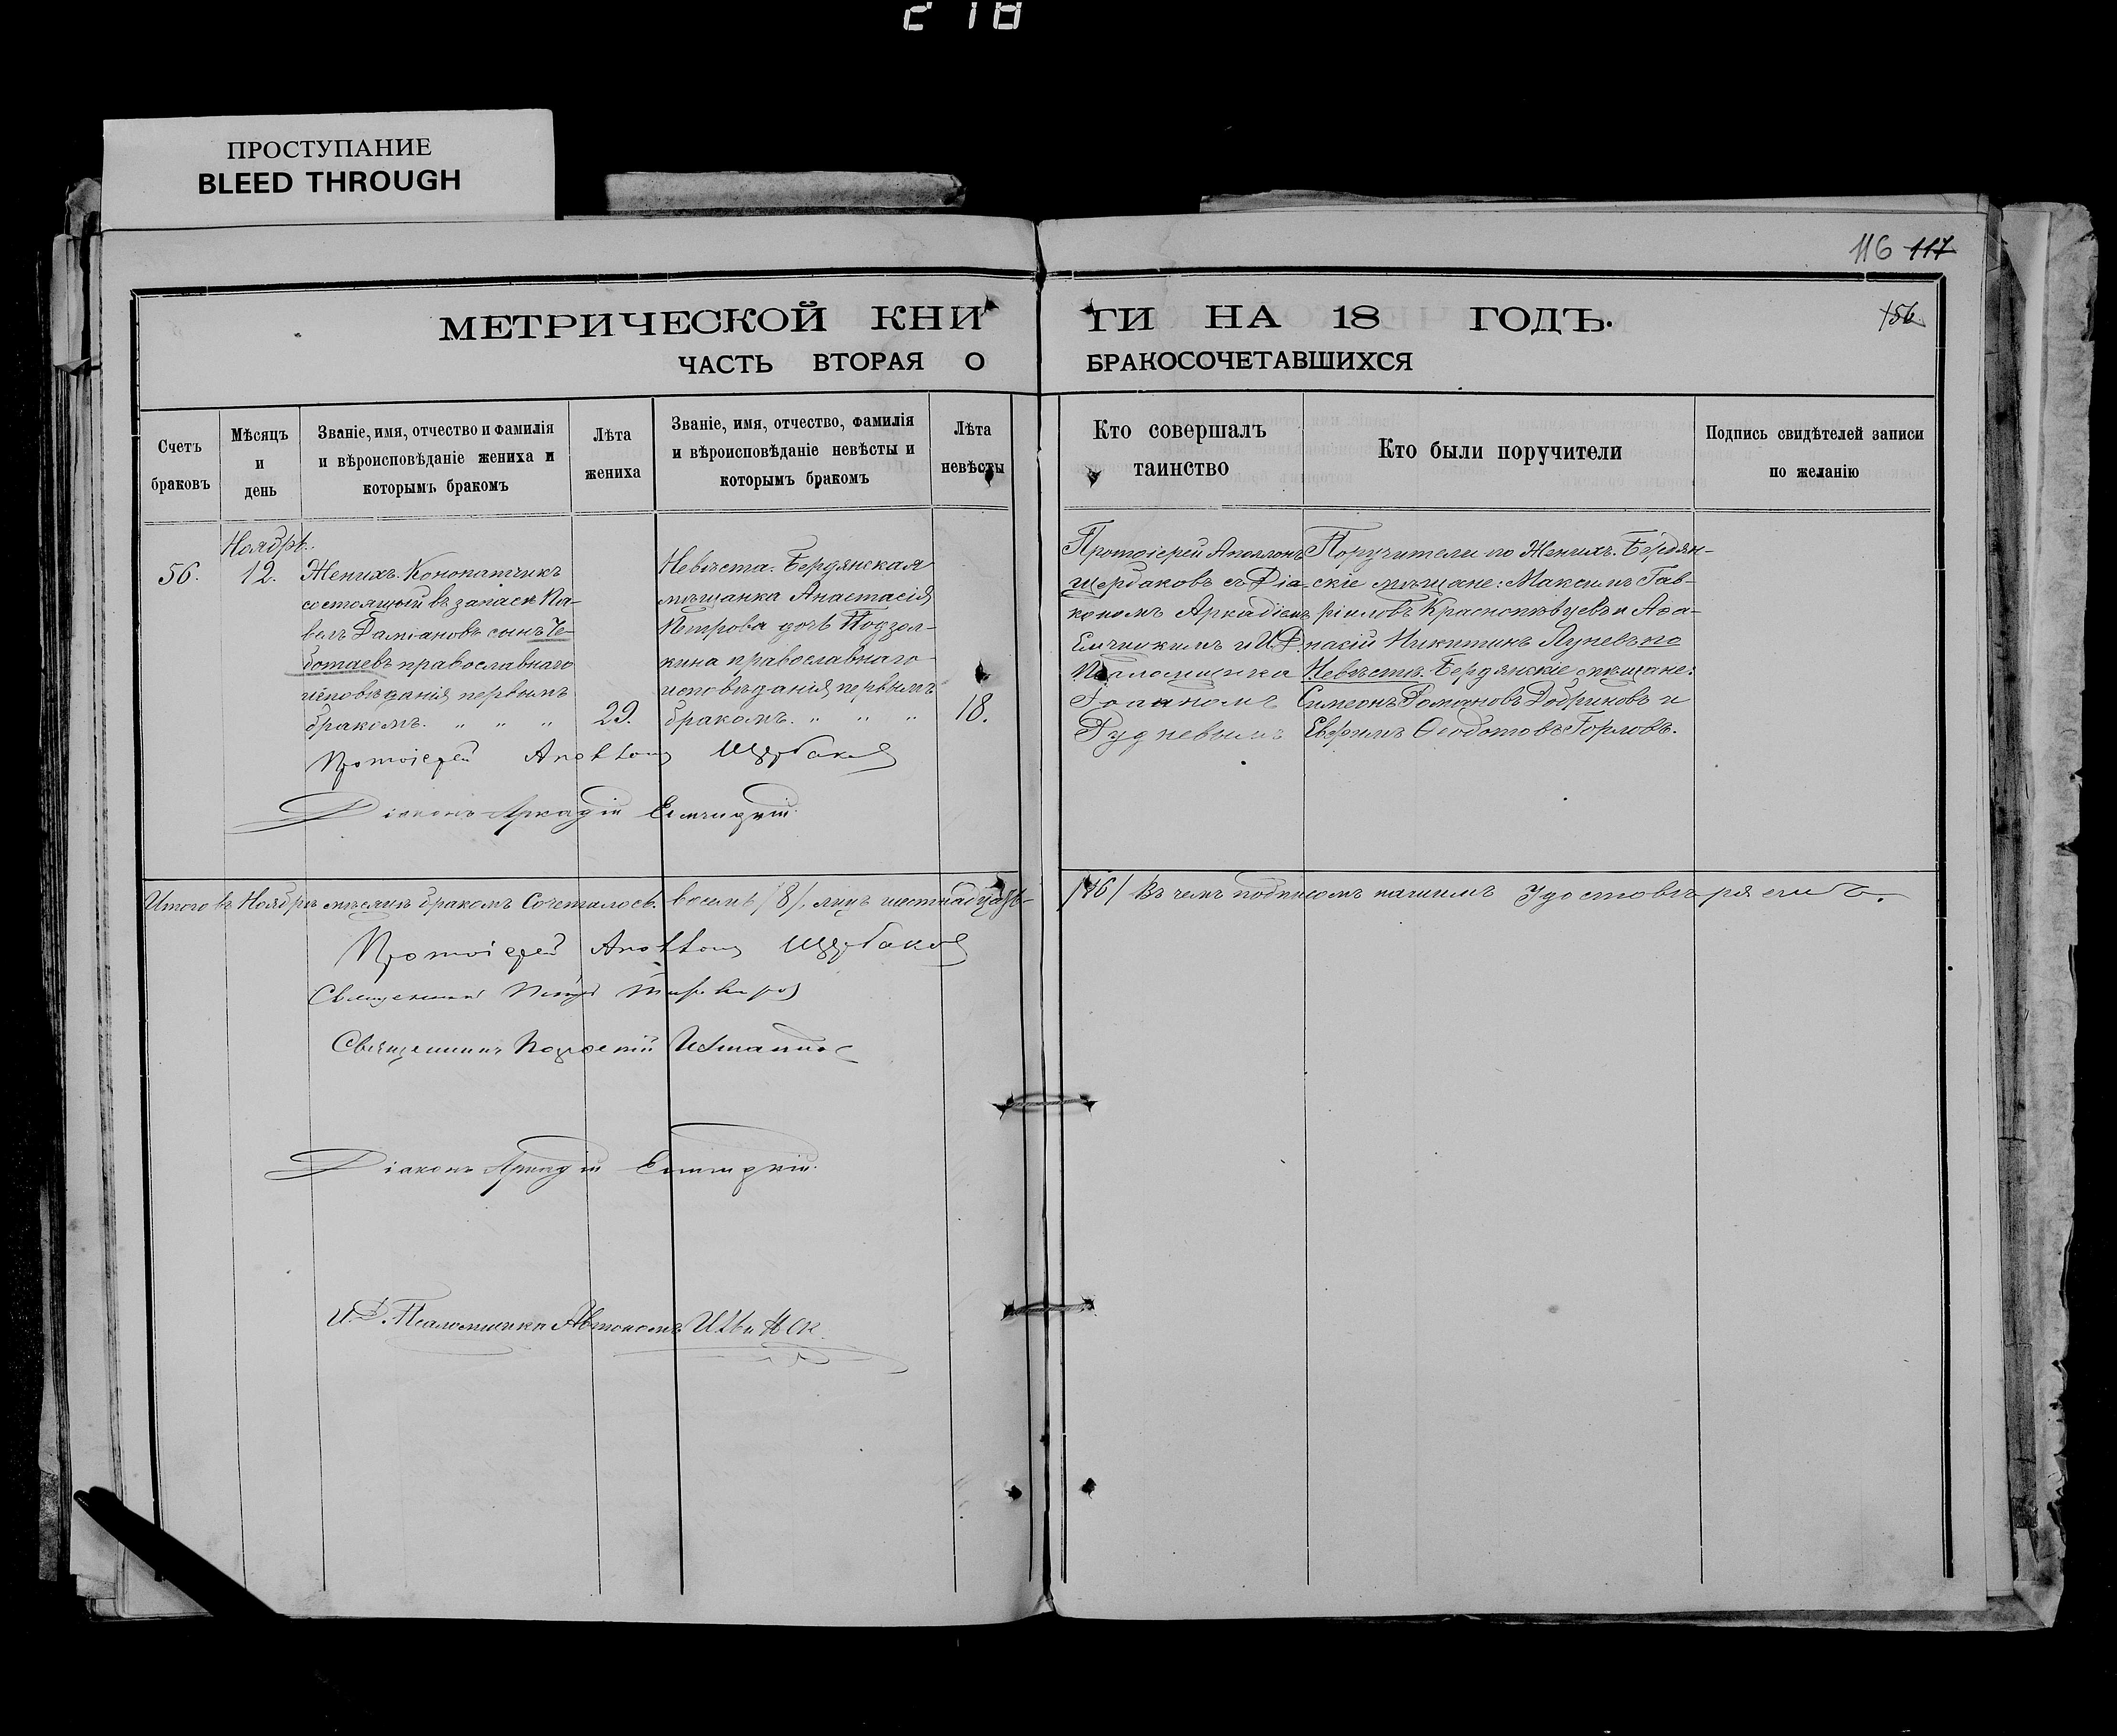 218
ПРОСТУПАНИЕ
BLEED THROUGH
116 117
156
МЕТРИЧЕСКОЙ КНИ
ГИ НА 18 ГОДЪ.
ЧАСТЬ ВТОРАЯ О
БРАКОСОЧЕТАВШИХСЯ
Счетъ
браковъ
Мѣсяцъ
и
день
Званіе, имя, отчество и фамилія
и вѣроисповѣданіе жениха и
которымъ бракомъ
Лѣта
жениха
Званіе, имя, отчество, фамилія
и вѣроисповѣданіе невѣсты и
которымъ бракомъ
Лѣта
невѣсты
Кто совершалъ
таинство
Кто были поручители
Подпись свидѣтелей записи
по желанію
56.
Ноябрь.
12.
Женихъ. Конопатчикъ
состоящій въ запасѣ Па-
велъ Даміановъ сынъ Че-
ботаевъ православнаго
исповѣданія первымъ
бракомъ. „ „ „
29.
Невѣста. Бердянская
мѣщанка Анастасія
Петрова дочь Подзол-
кина православнаго
исповѣданія первымъ
бракомъ. „ „ „
18.
Протоіерей Аполлонъ
Щербаковъ съ Діа-
кономъ Аркадіемъ
и И.Д.
Псаломщика
Іоанномъ
Рудневымъ
Поручители по Женихѣ. Бердян-
скіе мѣщане: Максимъ Гав-
ріиловъ Краснопѣвцевъ и Аѳа-
насій Никитинъ Луневъ по
Невѣстѣ. Бердянскіе мѣщане:
Симеонъ Романовъ Добриковъ и
Евфимъ Ѳеодотовъ Горловъ.
Протоіерей Аполлонъ Щербаковъ
Діаконъ Аркадій
Итого въ Ноябрѣ мѣсяцѣ бракомъ Сочеталось. восемь /8/. лицъ шестнадцать
/16/ Въ чемъ подписомъ нашимъ Удостовѣряемъ.
Протоіерей Аполлонъ Щербаковъ
Священникъ
Священникъ
Діаконъ Аркадій
И.Д. Псаломщика Автономъ